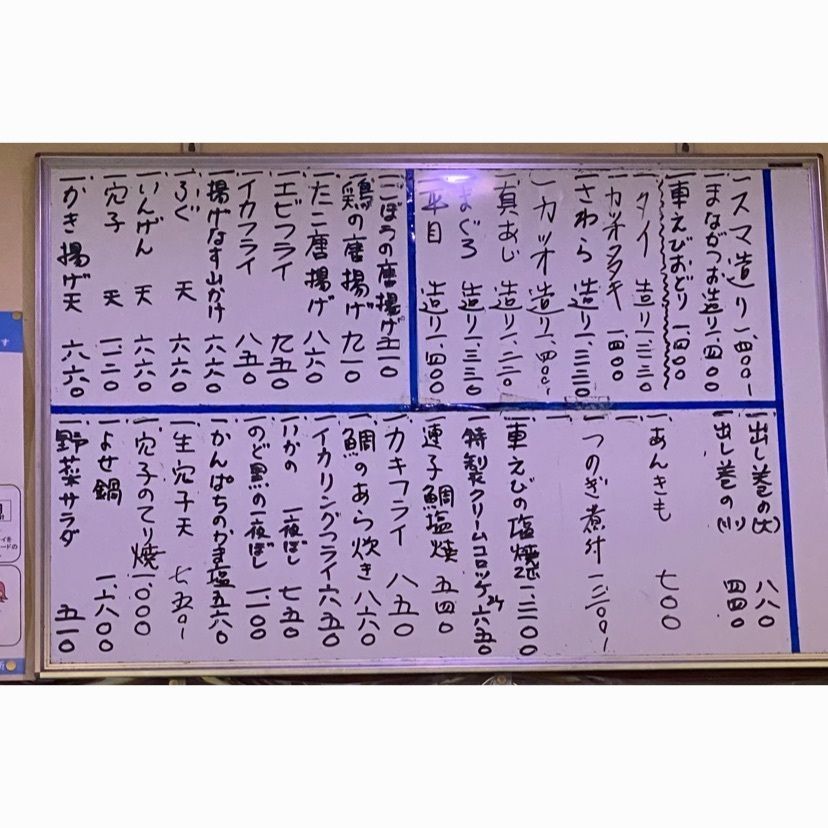 一スマ造り一、四〇〇ー
一まながつお造り一、四〇〇
一車えびおどり一、四〇〇
一タイ造り一、三三〇
一カツオタタキ一、四〇〇
一さわら造り一、三三〇
一カツオ造り一、四〇〇ー
一真あじ造り一、二一〇
一まぐろ造り一、三三〇
一平目造り一、四〇〇
一ごぼうの唐揚げ五一〇
一鶏の唐揚げ九一〇
一たこ唐揚げ八六〇
一エビフライ九五〇
一イカフライ八五〇
一揚げなす山かけ六六〇
天六六〇
一いんげん天六六〇
一穴子天一、一二〇
一かき揚げ天六六〇
一出し巻の(大)八八〇
一出し巻の(小)四四〇
一あんきも七〇〇
煮付一、二〇〇ー
一車えびの塩焼
一、二一〇〇
特製クリームコロッケ六五〇
一連子鯛塩焼五四〇
一カキフライ八五〇
一鯛のあら炊き八六〇
一イカリングフライ六五〇
一いかの一夜ぼし七五〇
一のど黒の一夜ぼし一、一〇〇
一かんぱちのかま塩五六〇
一生穴子天七五〇ー
一穴子のてり焼一、〇〇〇
一よせ鍋一、六〇〇
一野菜サラダ五一〇